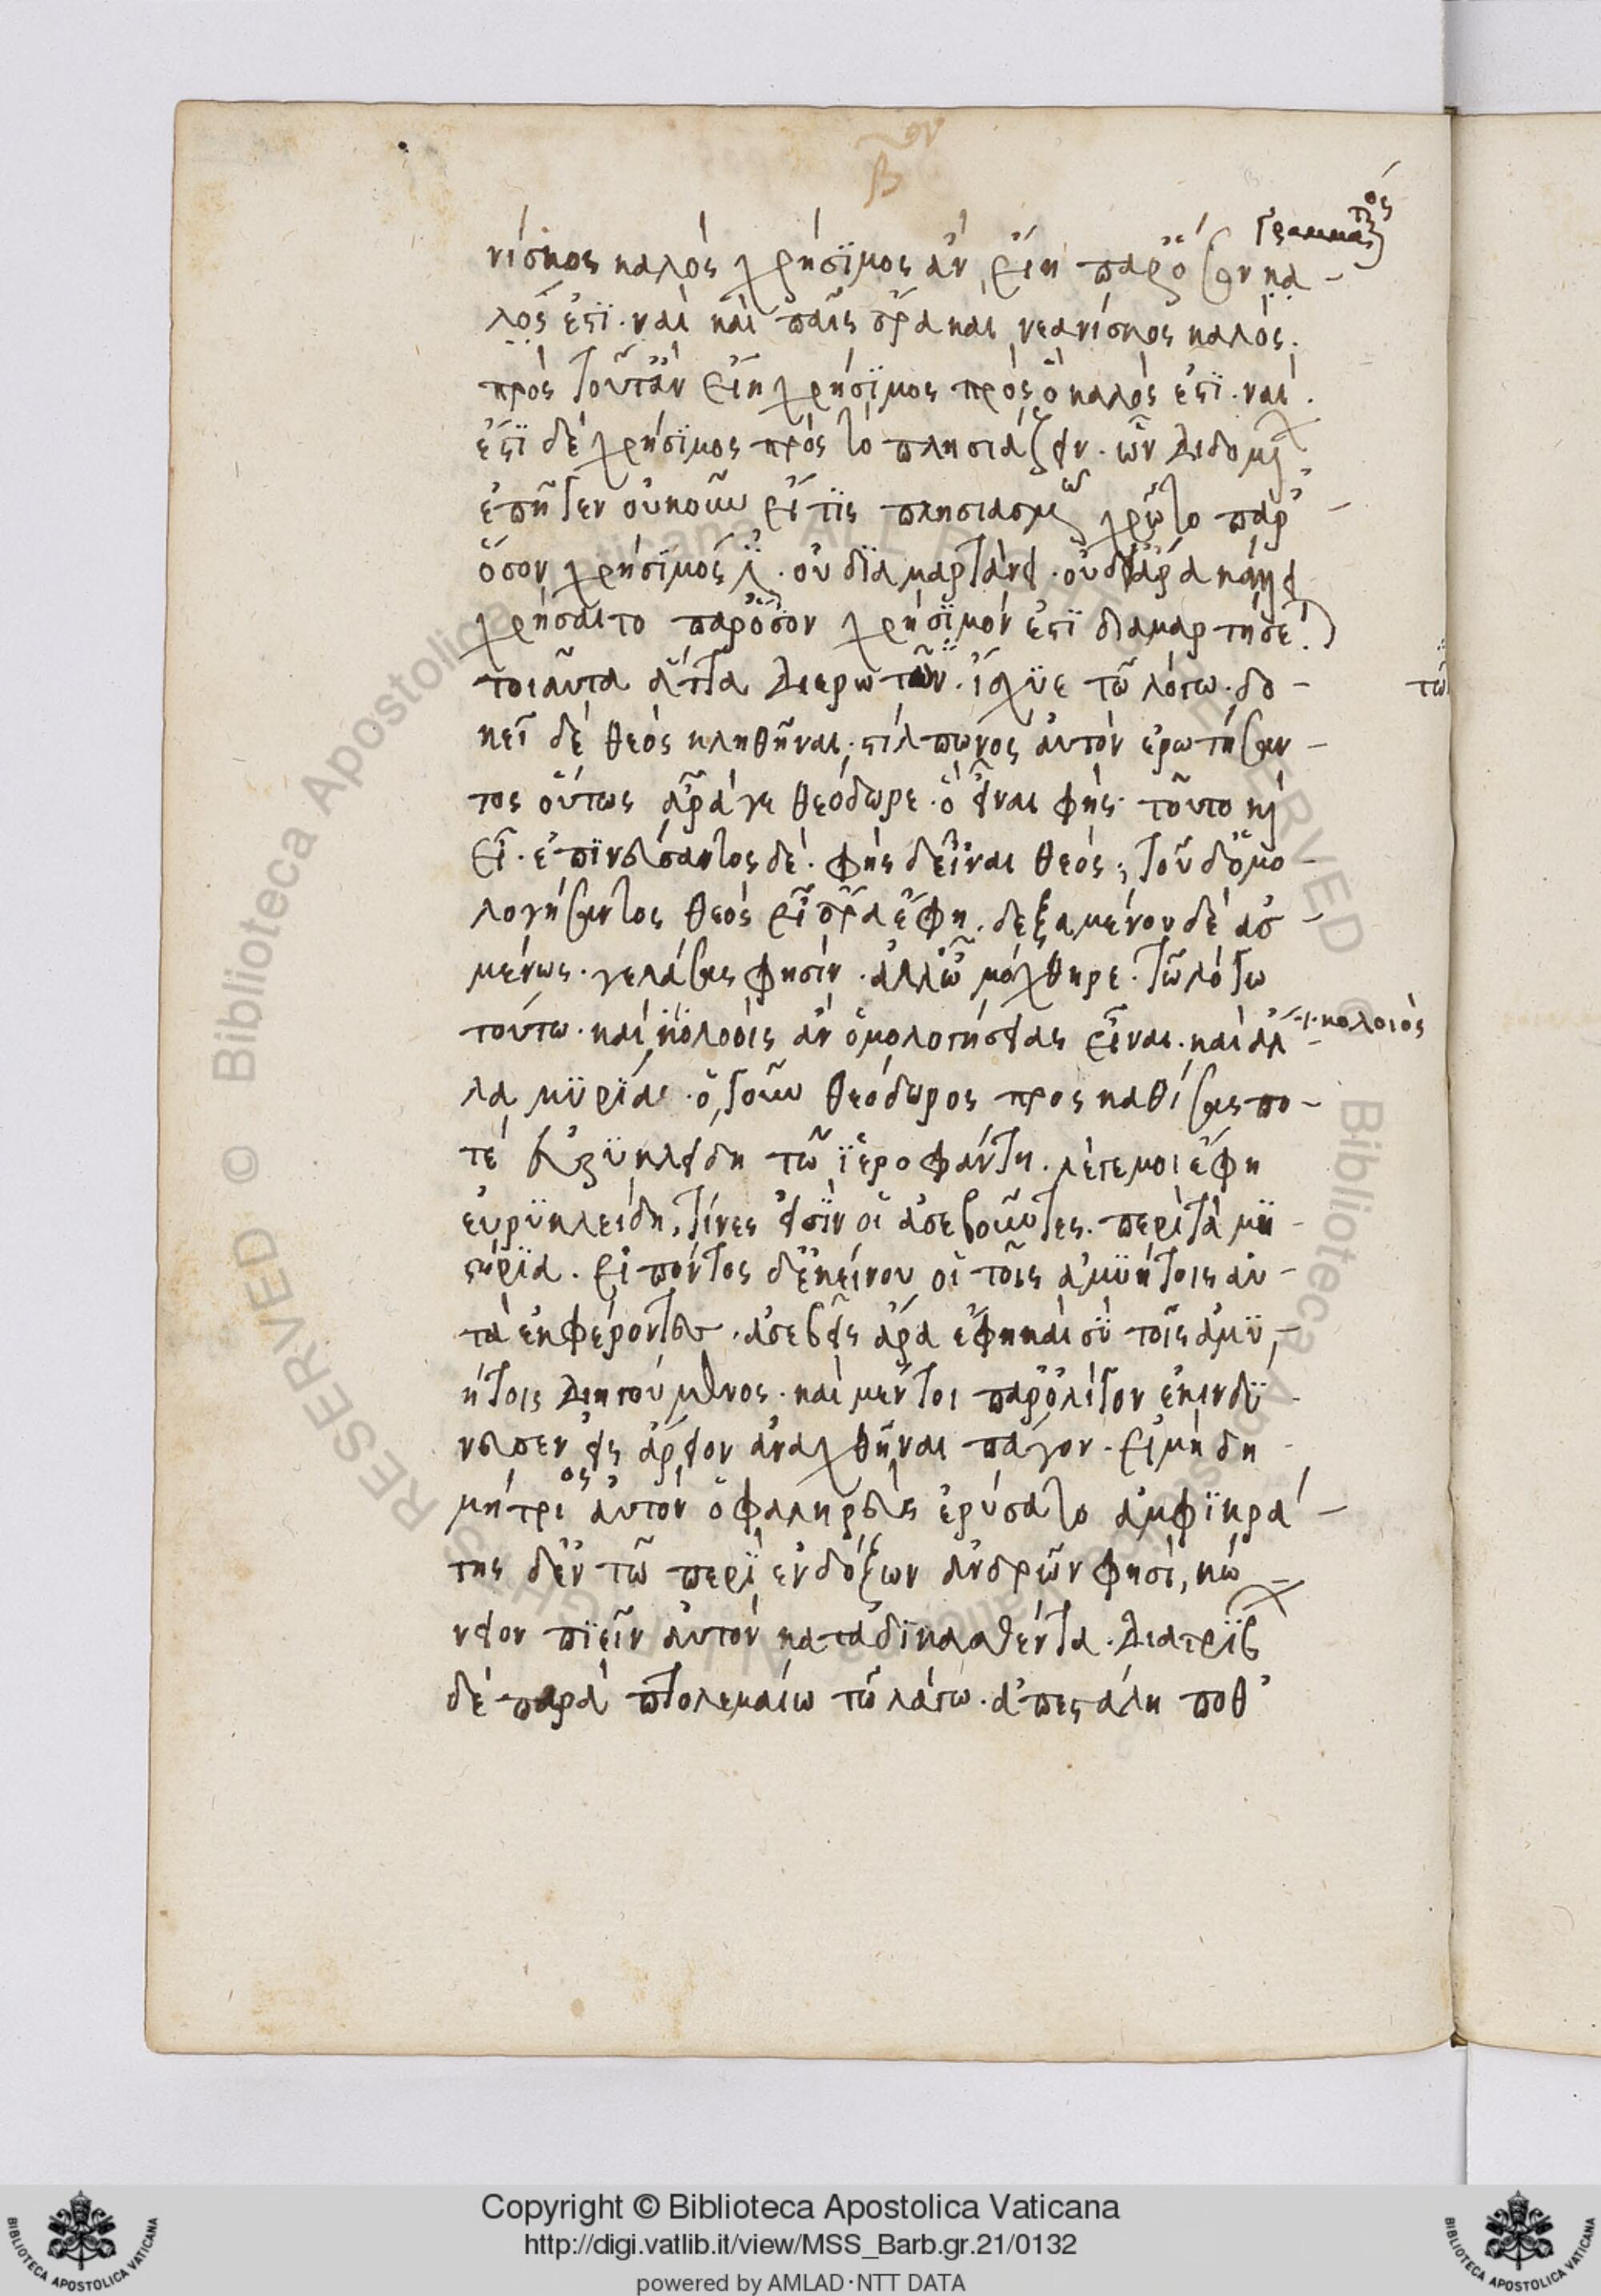 γραμματικός
νίσκος καλὸς χρήσϊμος ἂν εἴη παρ' ὅσον κα-
λός ἐστϊ. ναί καὶ παῖς ἄρα καὶ νεανίσκος καλὸς.
πρὸς τοῦτ' ἂν εἴη χρήσϊμος πρὸς ὃ καλός ἐστϊ. ναί.
ἔστϊ δὲ χρήσϊμος πρὸς τὸ πλησιάζειν. ὧν διδομένων
ἐπῆγεν οὐκοῦν εἴ τϊς πλησιασμῷ χρῷτο παρ'
ὅσον χρήσϊμός ἐστϊ. οὐ δϊαμαρτάνει. οὐδ' ἄρα κάλλει
χρήσαιτο παρ' ὅσον χρήσϊμόν ἐστϊ διαμαρτήσεται
τοιαῦτα ἄττα διερωτῶν. ἴσχϋε τῶ λόγω. δο-
κεῖ δὲ θεὸς κληθῆναι. στίλπωνος αὐτὸν ἐρωτήσαν-
τος οὕτως ἆρά γε θεόδωρε. ὃ εἶναι φὴς τοῦτο καὶ
εἶ. ἐπϊνεύσαντος δὲ. φὴς δ' εἶναι θεός, τοῦ δ' ὁμο-
λογήσαντος θεὸς εἶ ἄρα ἔφη. δεξαμένου δὲ ἀσ-
μένως. γελάσας φησὶν. ἀλλ' ὦ μόχθηρε. τῶ λόγω
τούτω. καὶ κολοὸις ἂν ὁμολογήσειας εἶναι. καὶ ἄλ-
κολοιὸς
λα μϋρϊα. ὁ γοῦν θεόδωρος προσκαθίσας πο-
τὲ εὐρϋκλείδη τῶ ϊεροφάντη. λέγε μοι ἔφη
εὐρϋκλείδη, τίνες εἰσὶν οἱ ἀσεβοῦντες. περὶ τὰ μϋ-
στήρϊα. εἰπόντος δ' ἐκείνου οἱ τοῖς ἀμϋήτοις αὐ-
τὰ ἐκφέροντες. ἀσεβεῖς ἄρα ἔφη καὶ σϋ τοῖς ἀμϋ-
ήτοις διηγούμενος. καὶ μέντοι παρ' ὀλίγον ἐκινδϋ-
νευσεν εἰς ἄρειον ἀναχθῆναι πάγον. εἰ μὴ δη-
μήτριος αὐτὸν ὁ φαληρεὺς ἐρύσατο ἀμφϊκρά-
της δ' ἐν τῶ περὶ ἐνδόξων ἀνδρῶν φησὶ, κώ-
νειον πϊεῖν αὐτὸν καταδϊκασθέντα. διατρϊβ
δὲ παρὰ πτολεμαίω τῶ λάγω. ἀπεστάλη ποθ'
Copyright © Biblioteca Apostolica Vaticana
http://digi.vatlib.it/view/MSS_Barb.gr.21/0132
powered by AMLAD·NTT DATA